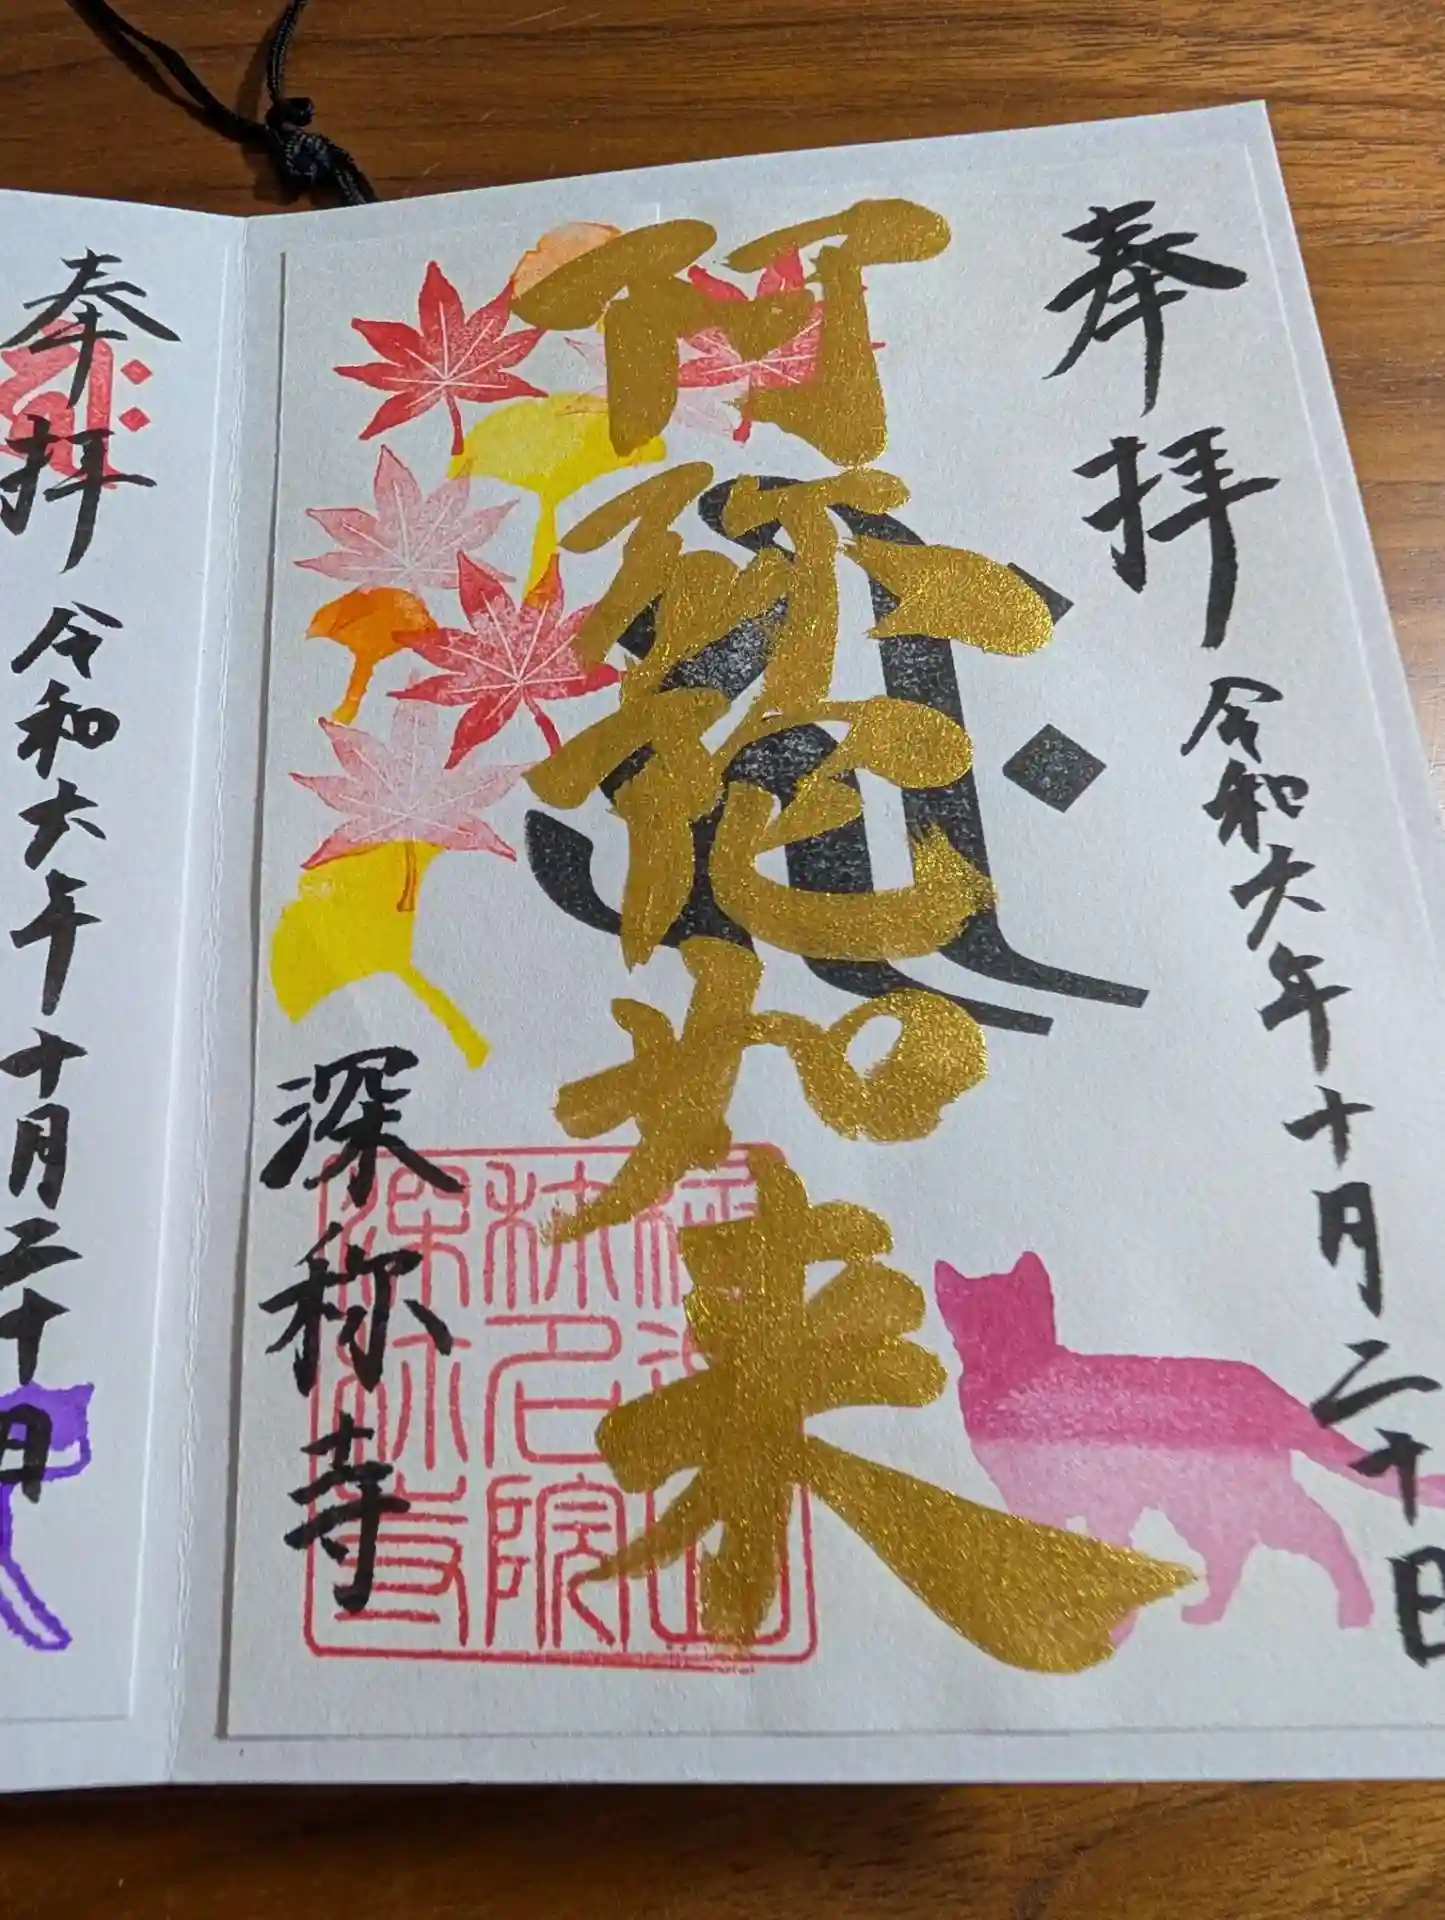 奉拝 令和六年十月二十日
阿弥陀如来
深称寺
称名院
深称寺
奉拝 令和六年十月二十日